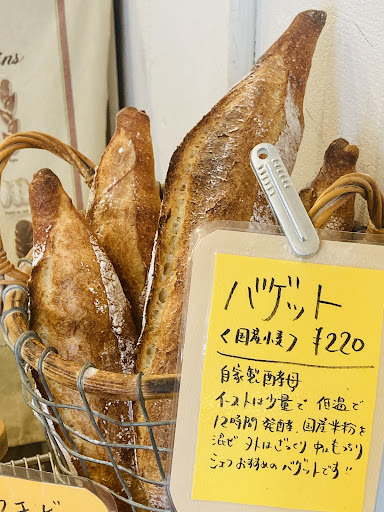 ins
バゲット
〈国産小麦〉 ¥220
自家製酵母
イーストは少量で 低温で
12時間発酵. 国産米粉を
混ぜ 外はざっくり 中はもっちり
シェフおすすめのバゲットです!!